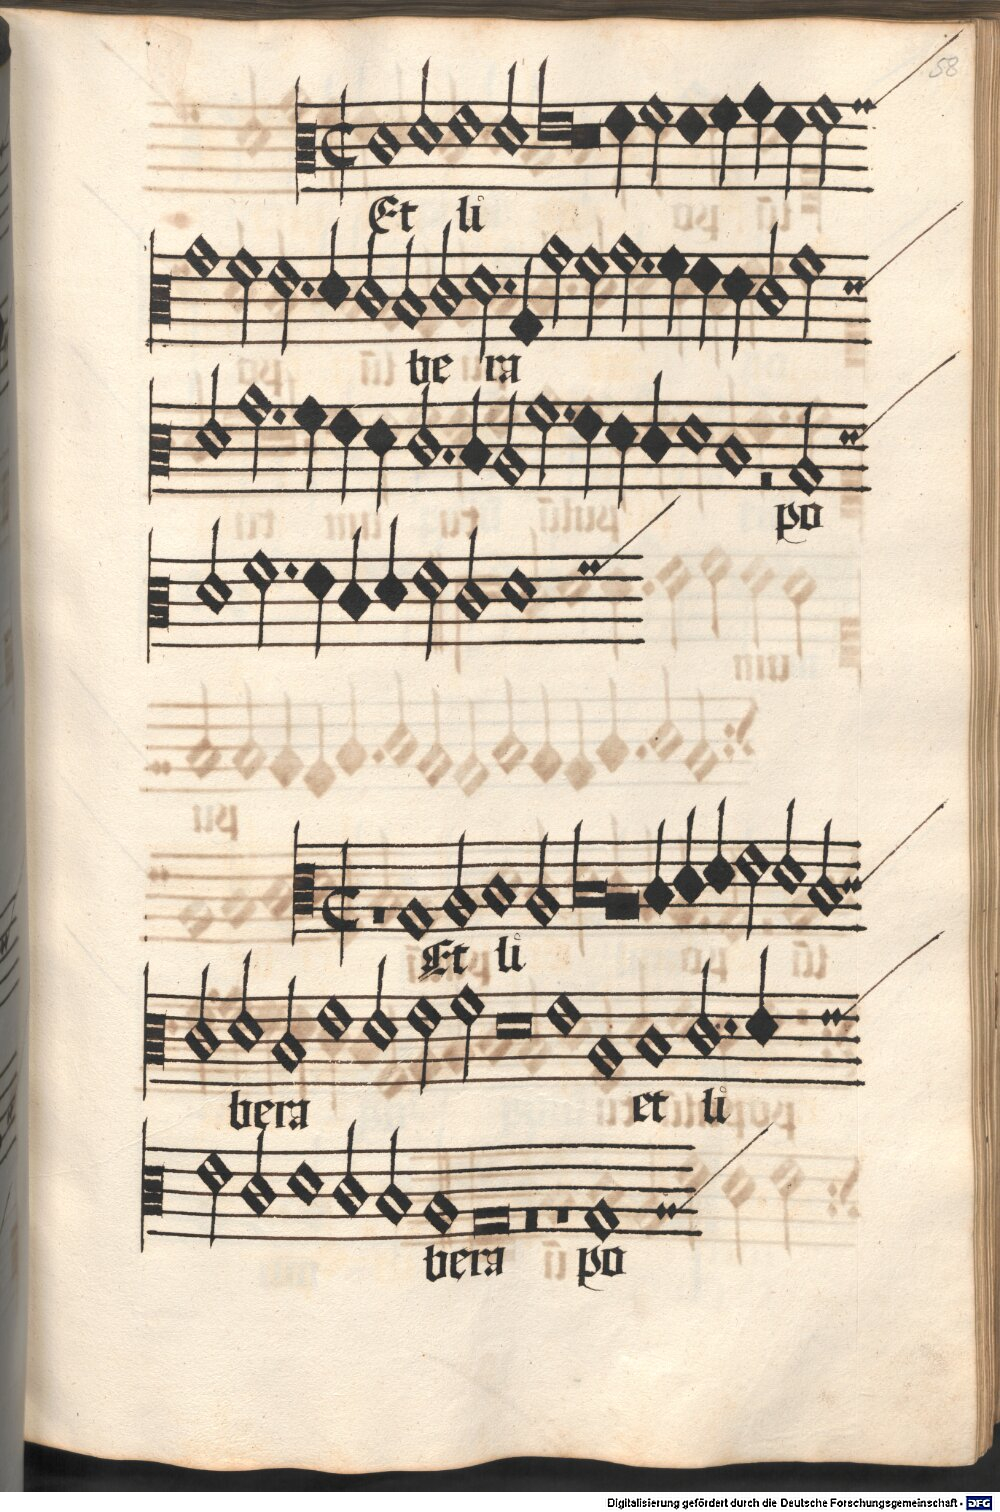 58
Et li
be ra
po
Et li
bera et li
bera po
Digitalisierung gefördert durch die Deutsche Forschungsgemeinschaft - DFG